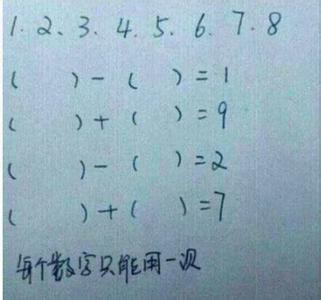 1. 2、3. 4. 5. 6. 7. 8
( ) - ( ) = 1
( ) + ( ) = 9
( ) - ( ) = 2
( ) + ( ) = 7
每个数字只能用一次